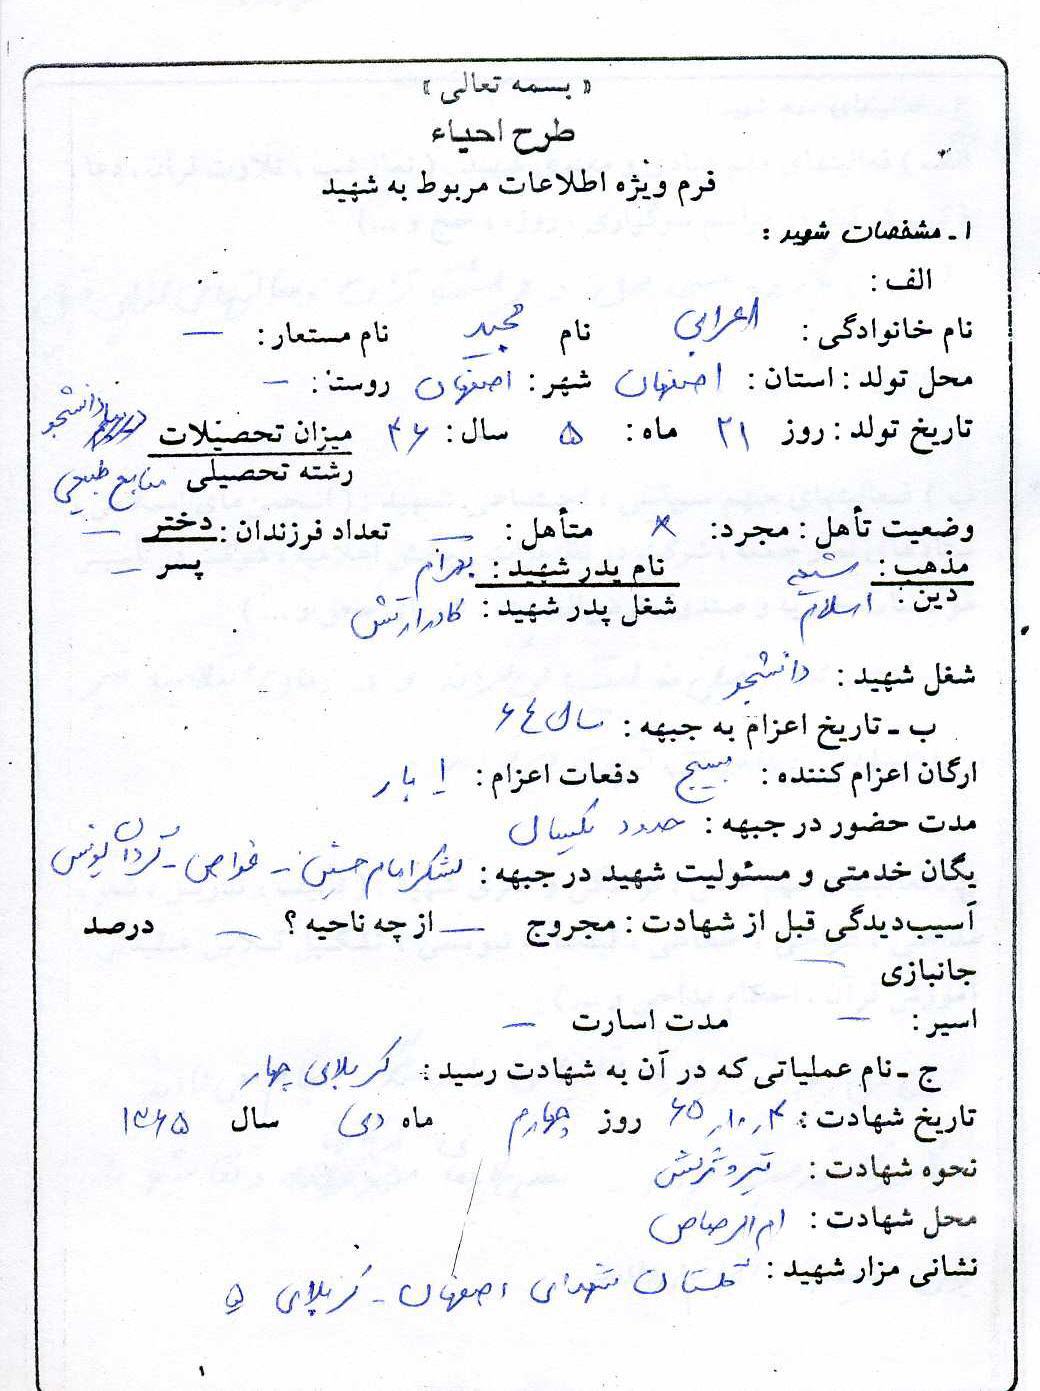 « بسمه تعالی »
طرح احیاء
فرم ویژه اطلاعات مربوط به شهید
۱ ـ مشخصات شهید :
الف :
نام خانوادگی : اعرابی نام مجید نام مستعار : —
محل تولد : استان : اصفهان شهر : اصفهان روستا : –
تاریخ تولد : روز ۲۱ ماه : ۵ سال : ۴۶ میزان تحصیلات دانشجو
رشته تحصیلی منابع طبیعی
وضعیت تأهل : مجرد : × متأهل : — تعداد فرزندان : دختر —
مذهب : شیعه نام پدر شهید : بهرام پسر —
دین : اسلام شغل پدر شهید : کادر ارتش
شغل شهید : دانشجو
ب ـ تاریخ اعزام به جبهه : سال ۶۴
ارگان اعزام کننده : بسیج دفعات اعزام : ۱ بار
مدت حضور در جبهه : حدود یکسال
یگان خدمتی و مسئولیت شهید در جبهه : لشکر امام حسین - غواص - گردان یونس
آسیب‌دیدگی قبل از شهادت : مجروح — از چه ناحیه ؟ — درصد
جانبازی —
اسیر : — مدت اسارت —
ج ـ نام عملیاتی که در آن به شهادت رسید : کربلای چهار
تاریخ شهادت : ۴ ر ۱۰ ر ۶۵ روز چهارم ماه دی سال ۱۳۶۵
نحوه شهادت : تیر و ترکش
محل شهادت : ام الرصاص
نشانی مزار شهید : گلستان شهدای اصفهان - کربلای ۵
۱